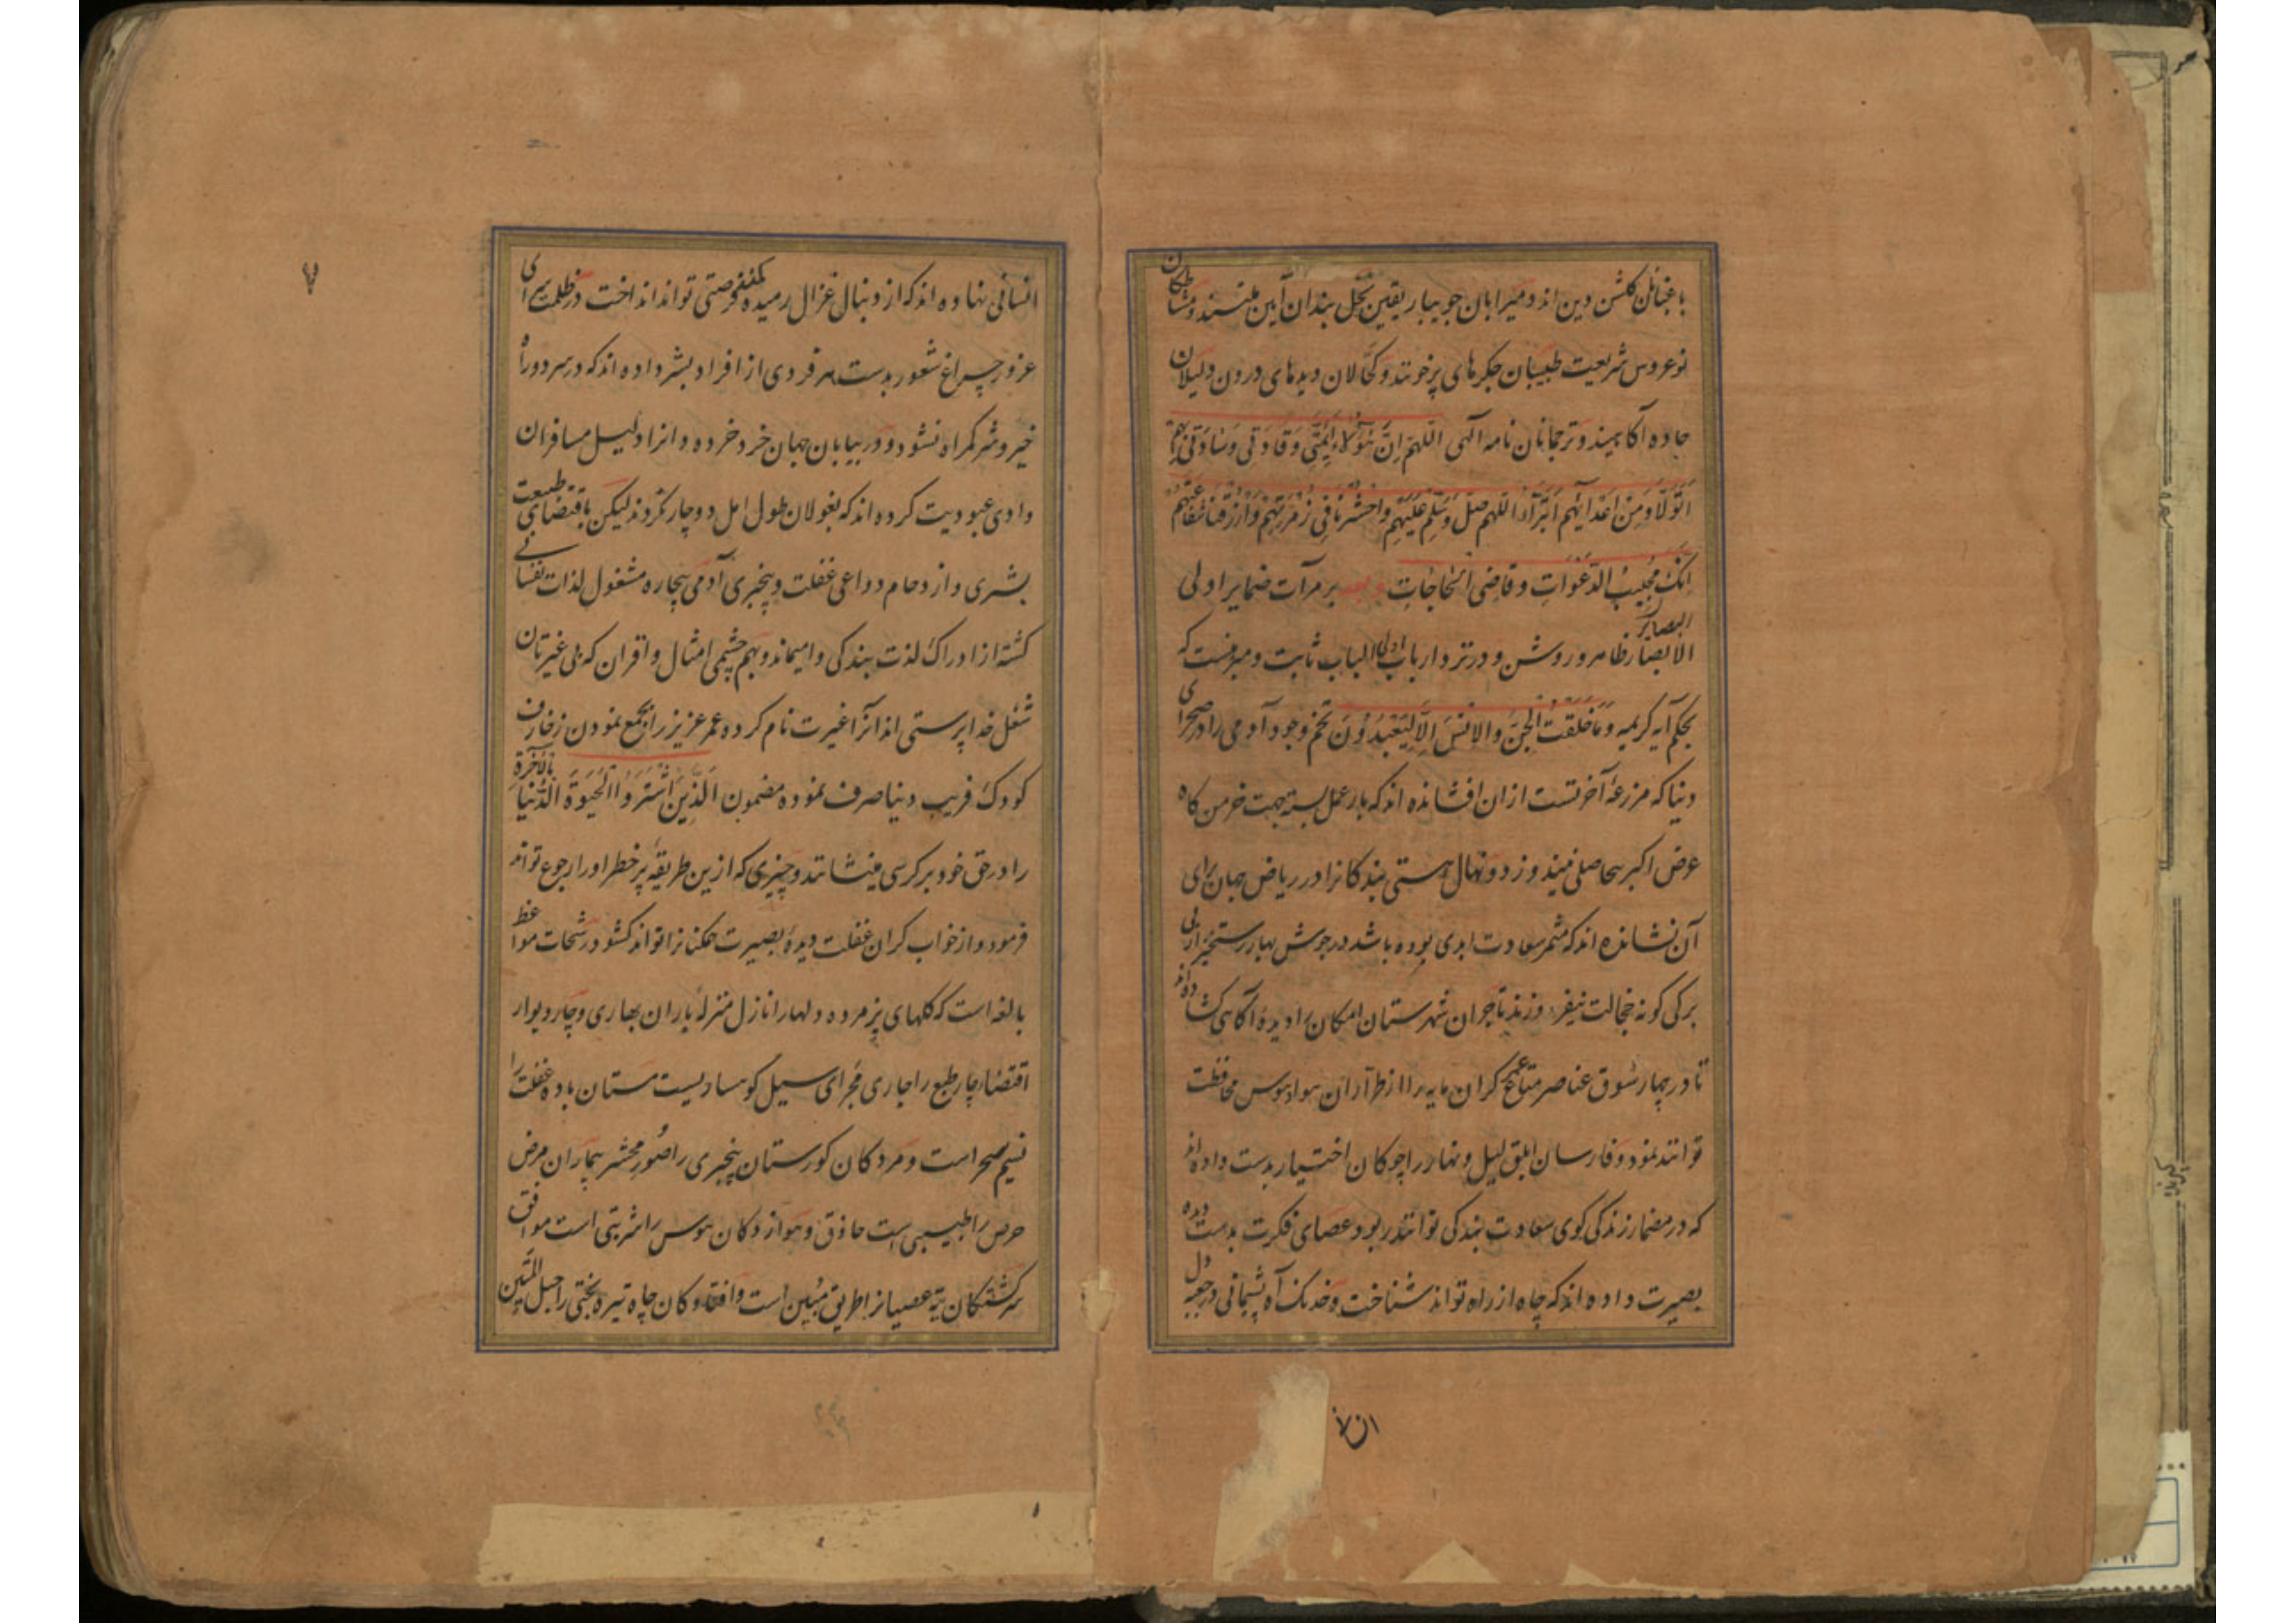 باغبانان گلشن دین اند و میرابان جویبار یقین نخل بندان آیین هستند و مشاطکان
نوعروس شریعت طبیبان جکرهای پرخونند و کحالان دیدهای درون دلیلان
جاده آکاهیند و ترجمانان نامه الهی اللهم ان هؤلاء ائمتی و قادتی و ساداتی بهم
اتولا و من اعدائهم اتبرأ اللهم صل و سلم علیهم و احشرنا فی زمرتهم و ارزقنا شفاعتهم
انک مجیب الدعوات و قاضی الحاجات و بعد بر مرآت ضمایر اولی
الابصار ظاهر و روشن و در نزد ارباب اولی الباب ثابت و مبرهنست که
البصایر
بحکم آیه کریمه و ما خلقت الجن و الانس الا لیعبدون تخم وجود آدمی را در صحرای
دنیا که مزرعهٔ آخرتست ازان افشانده اند که بار عمل بسته جهت خرمن کاه
عرض اکبر حاصلی بیندوزد و نهال هستی بندکانرا در ریاض جهان برای
آن نشانده اند که مثمر سعادت ابدی بوده باشد در جوش بهار رستخیز از بی
برکی کونه خجالت نیفروزند تاجران شهرستان امکان را دیدهٔ آکاهی کشاده اند
تا در چهار سوق عناصر متاع عمر کران مایه را از طراران هوا و هوس محافظت
توانند نمود و فارسان ابلق لیل و نهار را چوکان اختیار بدست داده اند
که در مضمار زندکی کوی سعادت بندکی توانند ربود عصای فکرت بدست دیده
بصیرت داده اند که چاه از راه تواند شناخت و خدنک آه پشیمانی در جعبه دل
انسانی
انسانی نهاده اند که از دنبال غزال رمیده فرصتی تواند انداخت در ظلمت سرای
غرور چراغ شعور بدست هر فردی از افراد بشر داده اند که در سر دوراه
خیر و شر کمراه نشود و در بیابان جهان خرد خرده دانرا دلیل مسافران
وادی عبودیت کرده اند که بغولان طول امل دوچار نکردند لیکن باقتضای طبیعت
بشری و ازدحام دواعی غفلت و بیخبری آدمی بیچاره مشغول لذات نفسانی
کشته از ادراک لذت بندکی وامیماند و بهم چشمی امثال و اقران که بی غیرتان
شغل خدا پرستی اند انرا غیرت نام کرده عمر عزیز را بجمع نمودن زخارف
کودک فریب دنیا صرف نموده مضمون الذین اشتروا الحیوة الدنیا بالآخرة
را در حق خود بر کرسی مینشاند و چیزی که ازین طریقهٔ پر خطر او را رجوع تواند
فرمود و از خواب کران غفلت دیدهٔ بصیرت همکنانرا تواند کشود رشحات مواعظ
بالغه است که کلهای پژمرده دلها را نازل منزلهٔ باران بهاری و چار دیوار
اقتضاء چار طبع را جاری مجرای سیل کوهساریست مستان باده غفلت را
نسیم سحر است و مردکان کورستان بیخبری را صور محشر بیماران مرض
حرص را طبیبی است حاذق و هوازدکان هوس را شربتی است موافق
سرکشتکان تیه عصیانرا طریق مبین است و افتادکان چاه تیره بختی را حبل المتین
۷